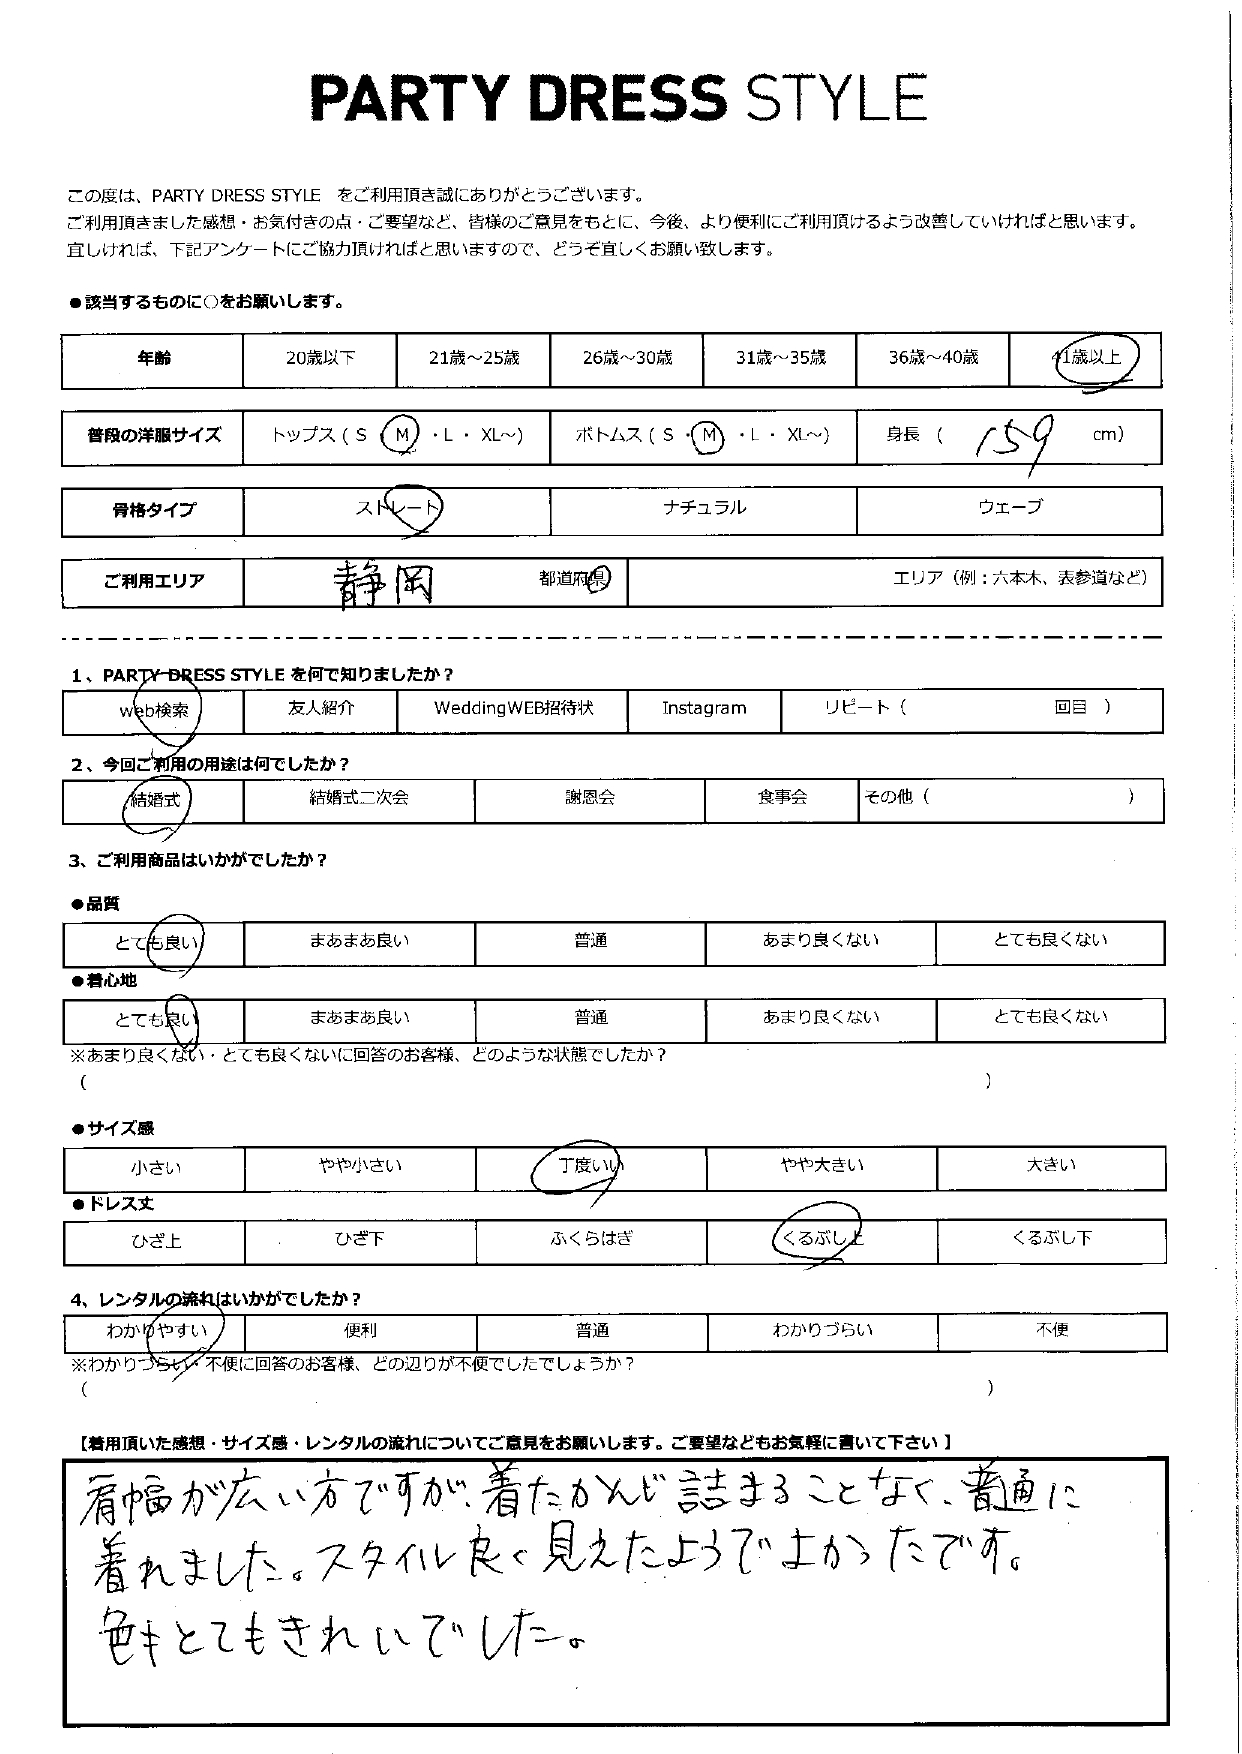 PARTY DRESS STYLE
この度は、PARTY DRESS STYLE をご利用頂き誠にありがとうございます。
ご利用頂きました感想・お気付きの点・ご要望など、皆様のご意見をもとに、今後、より便利にご利用頂けるよう改善していければと思います。
宜しければ、下記アンケートにご協力頂ければと思いますので、どうぞ宜しくお願い致します。
●該当するものに○をお願いします。
年齢 20歳以下 21歳～25歳 26歳～30歳 31歳～35歳 36歳～40歳 41歳以上
普段の洋服サイズ トップス ( S ・ M ・L ・ XL～) ボトムス ( S ・ M ・L ・ XL～) 身長 ( 159 cm)
骨格タイプ ストレート ナチュラル ウェーブ
ご利用エリア 静岡 都道府県 エリア（例：六本木、表参道など）
1、PARTY DRESS STYLE を何で知りましたか？
web検索 友人紹介 WeddingWEB招待状 Instagram リピート（ 回目 ）
2、今回ご利用の用途は何でしたか？
結婚式 結婚式二次会 謝恩会 食事会 その他（ ）
3、ご利用商品はいかがでしたか？
●品質
とても良い まあまあ良い 普通 あまり良くない とても良くない
●着心地
とても良い まあまあ良い 普通 あまり良くない とても良くない
※あまり良くない・とても良くないに回答のお客様、どのような状態でしたか？
( )
●サイズ感
小さい やや小さい 丁度いい やや大きい 大きい
●ドレス丈
ひざ上 ひざ下 ふくらはぎ くるぶし上 くるぶし下
4、レンタルの流れはいかがでしたか？
わかりやすい 便利 普通 わかりづらい 不便
※わかりづらい・不便に回答のお客様、どの辺りが不便でしたでしょうか？
( )
【着用頂いた感想・サイズ感・レンタルの流れについてご意見をお願いします。ご要望などもお気軽に書いて下さい 】
肩幅が広い方ですが、着たかんじ詰まることなく、普通に
着れました。スタイル良く見えたようでよかったです。
色もとてもきれいでした。